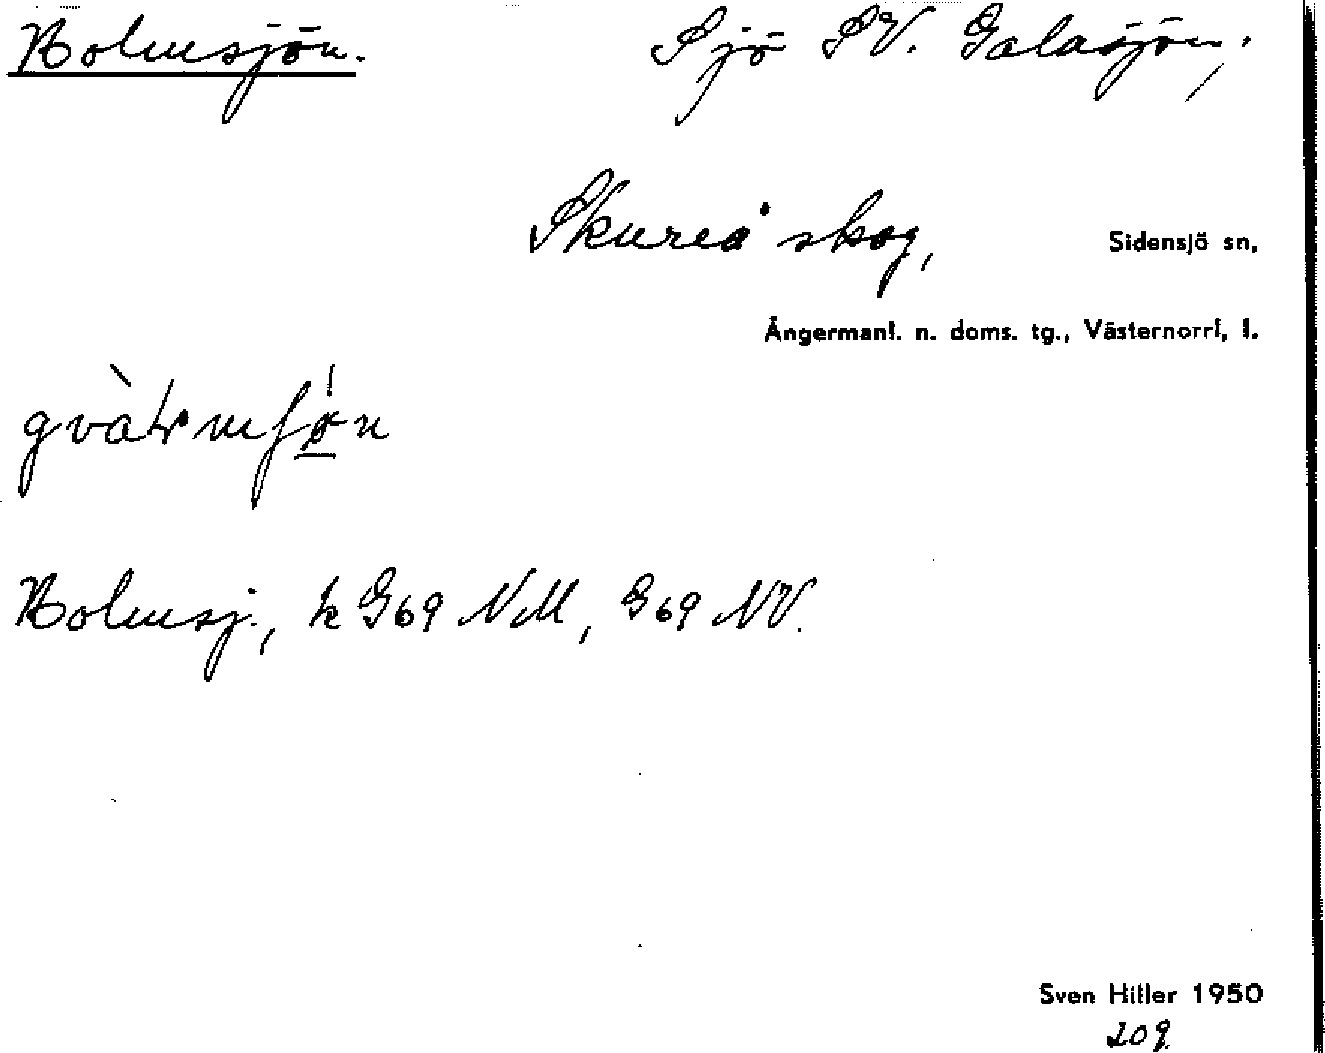 Holmsjön. Sjö SV. Galasjön,
Skureå skog, Sidensjö sn,
Ångermanl. n. doms. tg., Västernorrl, l.
Holmsj., k G69 NM, G69 NV.
Sven Hitler 1950
209